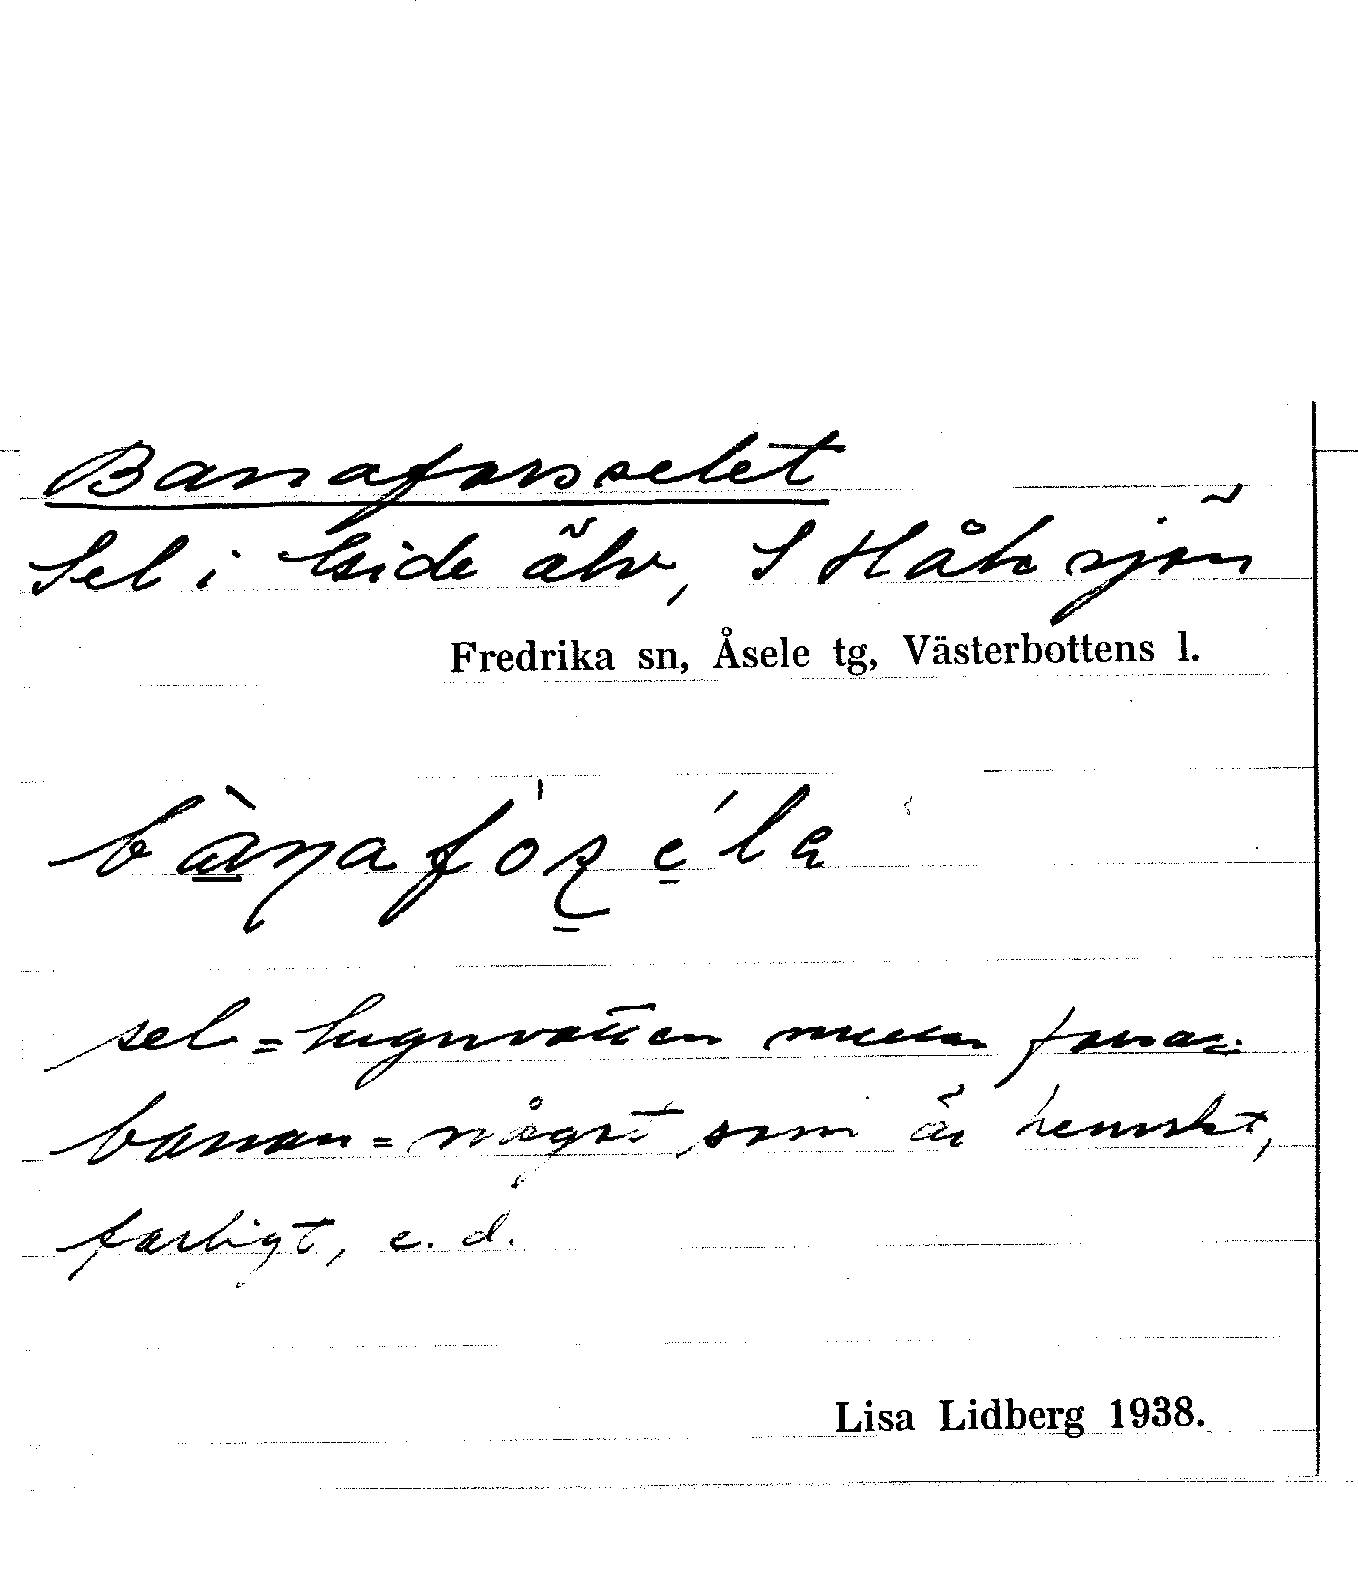 Banaforsselet
Sel i Gide älv, S Håksjön
Fredrika sn, Åsele tg, Västerbottens l.
sel = lugnvatten mellan forsar.
banan = något som är hemskt,
farligt, e. d.
Lisa Lidberg 1938.